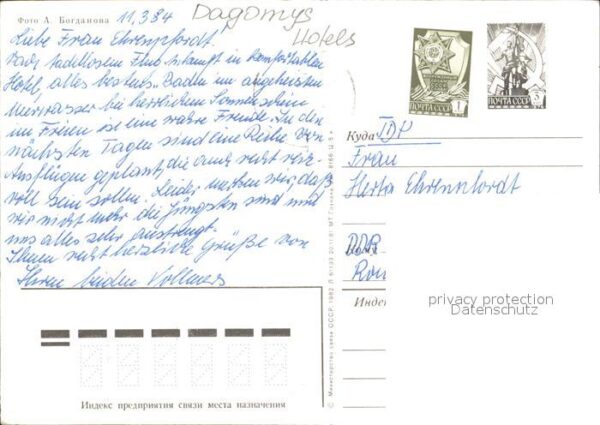 Фото А. Богданова
11.3.84
Dagomys
Hotels
Liebe Frau Ehrenpfordt.
Nach tadellosem Flug Ankunft in komfortablem
Hotel, alles bestens. Baden im angeheizten
Meerwasser bei herrlichem Sonnenschein
im Freien ist eine wahre Freude. In den
nächsten Tagen sind eine Reihe von
Ausflügen geplant, die auch recht reiz-
voll sein sollen. Leider merken wir, daß
wir nicht mehr die Jüngsten sind und
uns alles sehr anstrengt.
Ihnen recht herzliche Grüße von
Ihren beiden Vollmers
ПОЧТА СССР 1
ПОЧТА СССР
Куда
Frau
Herta Ehrenpfordt
DDR
Индекс
privacy protection
Datenschutz
© Министерство связи СССР, 1982
Индекс предприятия связи места назначения